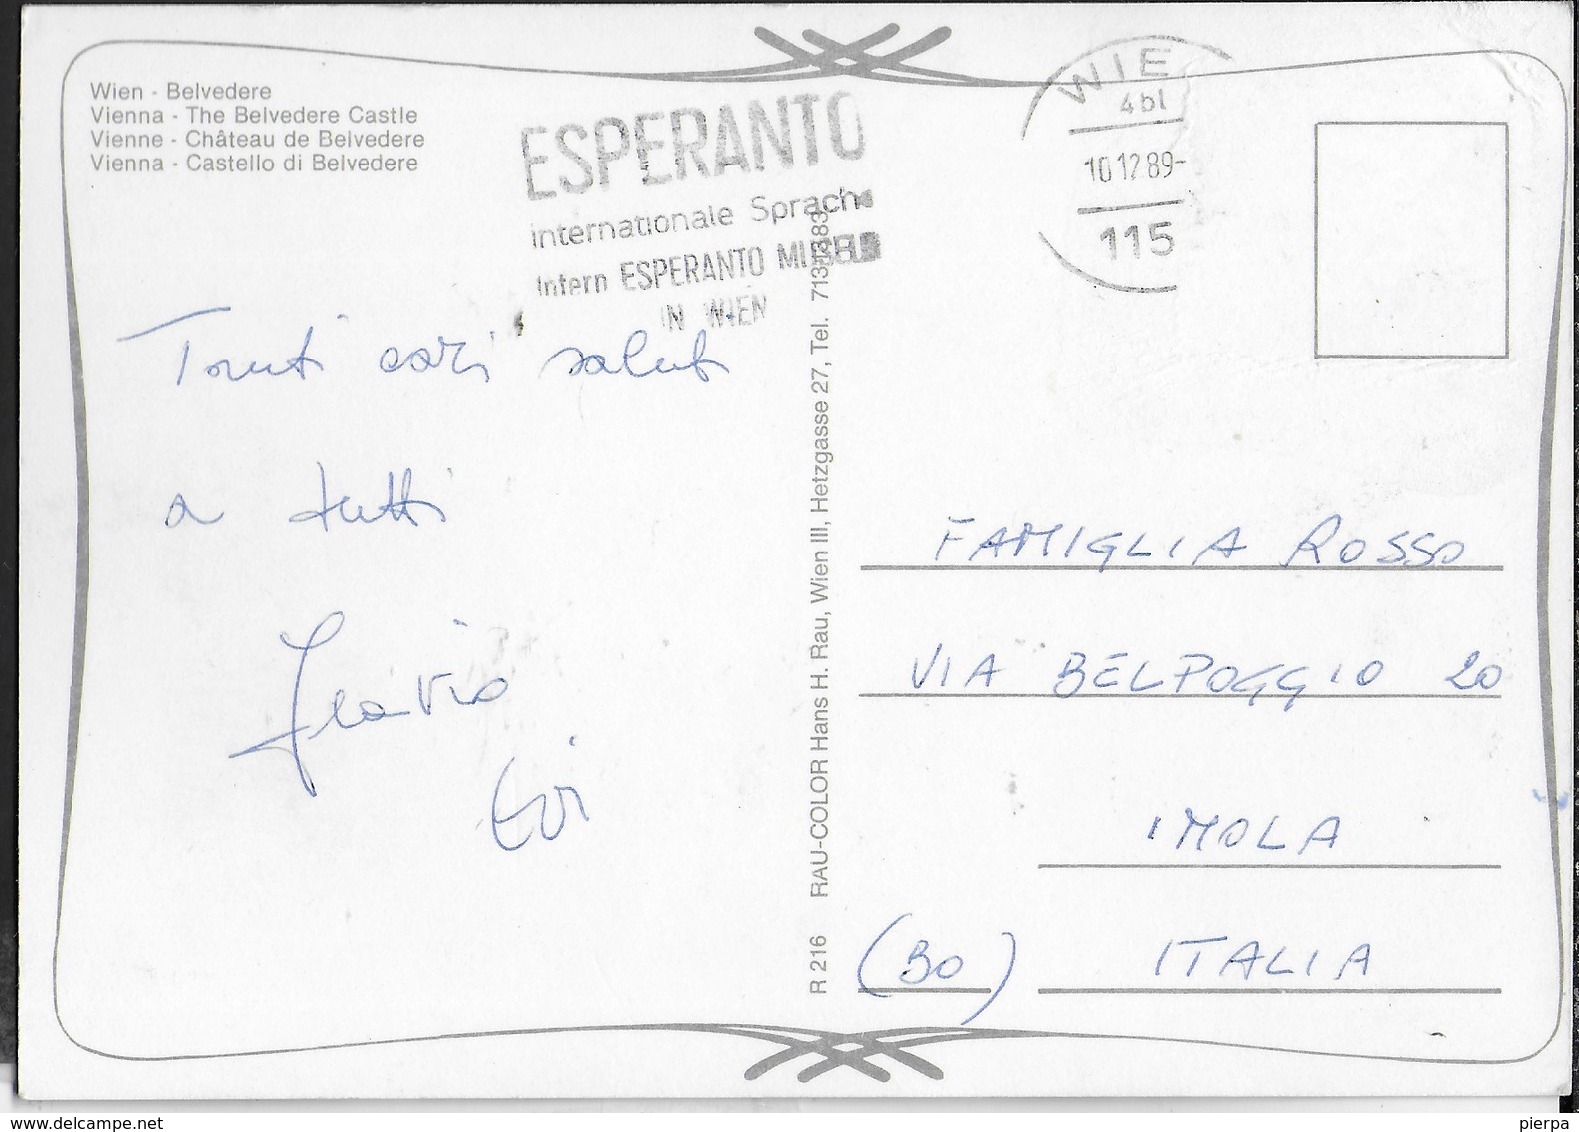 Wien - Belvedere
Vienna - The Belvedere Castle
Vienne - Château de Belvedere
Vienna - Castello di Belvedere
ESPERANTO
internationale Sprache
Intern ESPERANTO MUSEUM
IN WIEN
WIE
4bl
10.12.89-
115
Tanti cari saluti
a tutti
Flavio
Evi
R 216 RAU-COLOR Hans H. Rau, Wien III, Hetzgasse 27, Tel.
FAMIGLIA ROSSO
VIA BELPOGGIO 20
IMOLA
(BO) ITALIA
pierpa